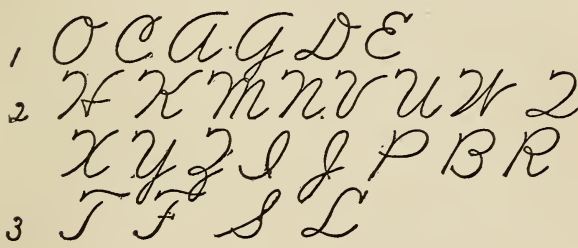 1 O C A G D E
2 H K M N V U W Q
X Y Z I J P B R
3 T F S L